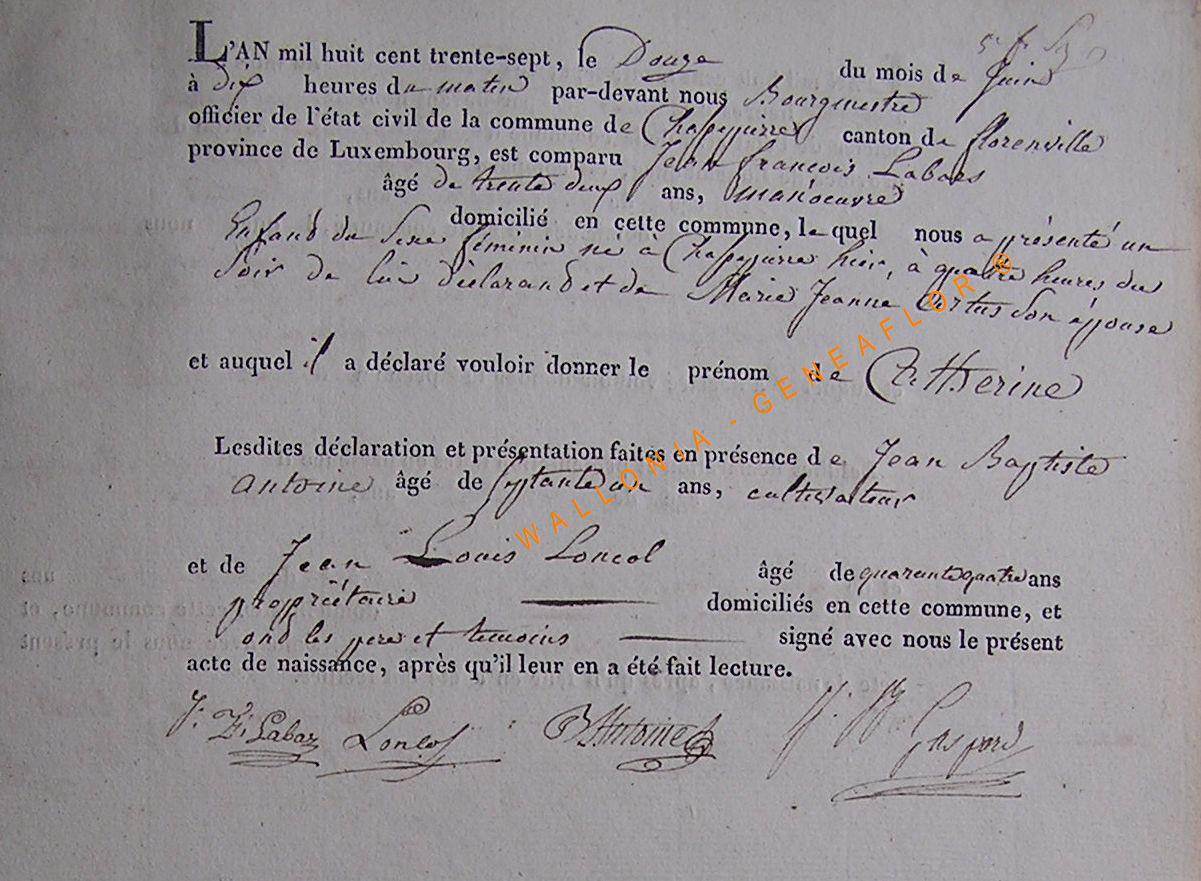 L'AN mil huit cent trente-sept, le Douze du mois de Juin
à dix heures du matin par-devant nous Bourgmestre
officier de l'état civil de la commune de Chassepierre canton de florenville
province de Luxembourg, est comparu Jean françois Labaes
âgé de trente deux ans, manoeuvre
domicilié en cette commune, le quel nous a présenté un
Enfant du Sexe féminin né à Chassepierre hier, à quatre heures du
Soir de lui déclarant et de Marie Jeanne Son épouse
et auquel il a déclaré vouloir donner le prénom de Catherine
Lesdites déclaration et présentation faites en présence de Jean Baptiste
antoine âgé de Septante un ans, cultivateur
et de Jean Louis Loncol âgé de quarente quatre ans
propriétaire domiciliés en cette commune, et
ont les pere et temoins signé avec nous le présent
acte de naissance, après qu'il leur en a été fait lecture.
J: F: Labaz Loncol B Antoine Gaspard
WALLONIA - GENEAFLOR ®